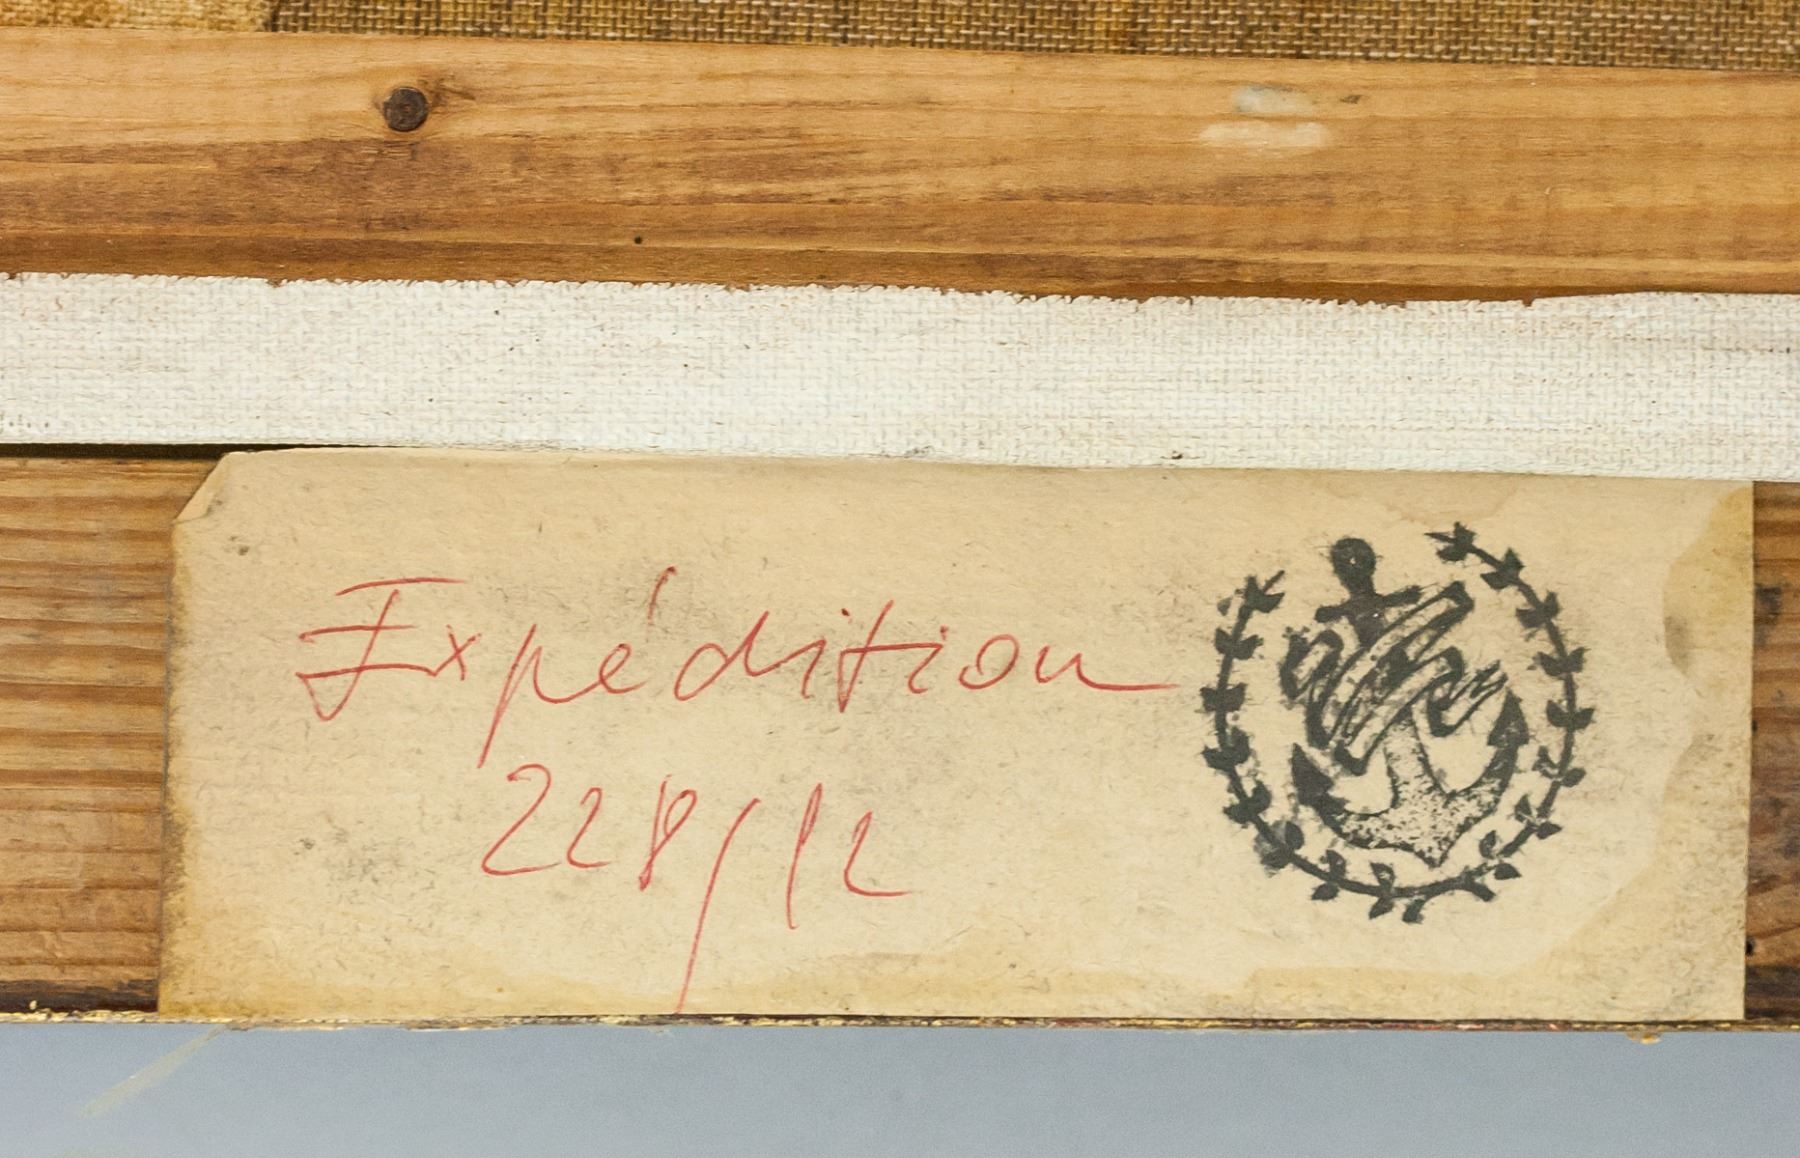 Expédition
228/12